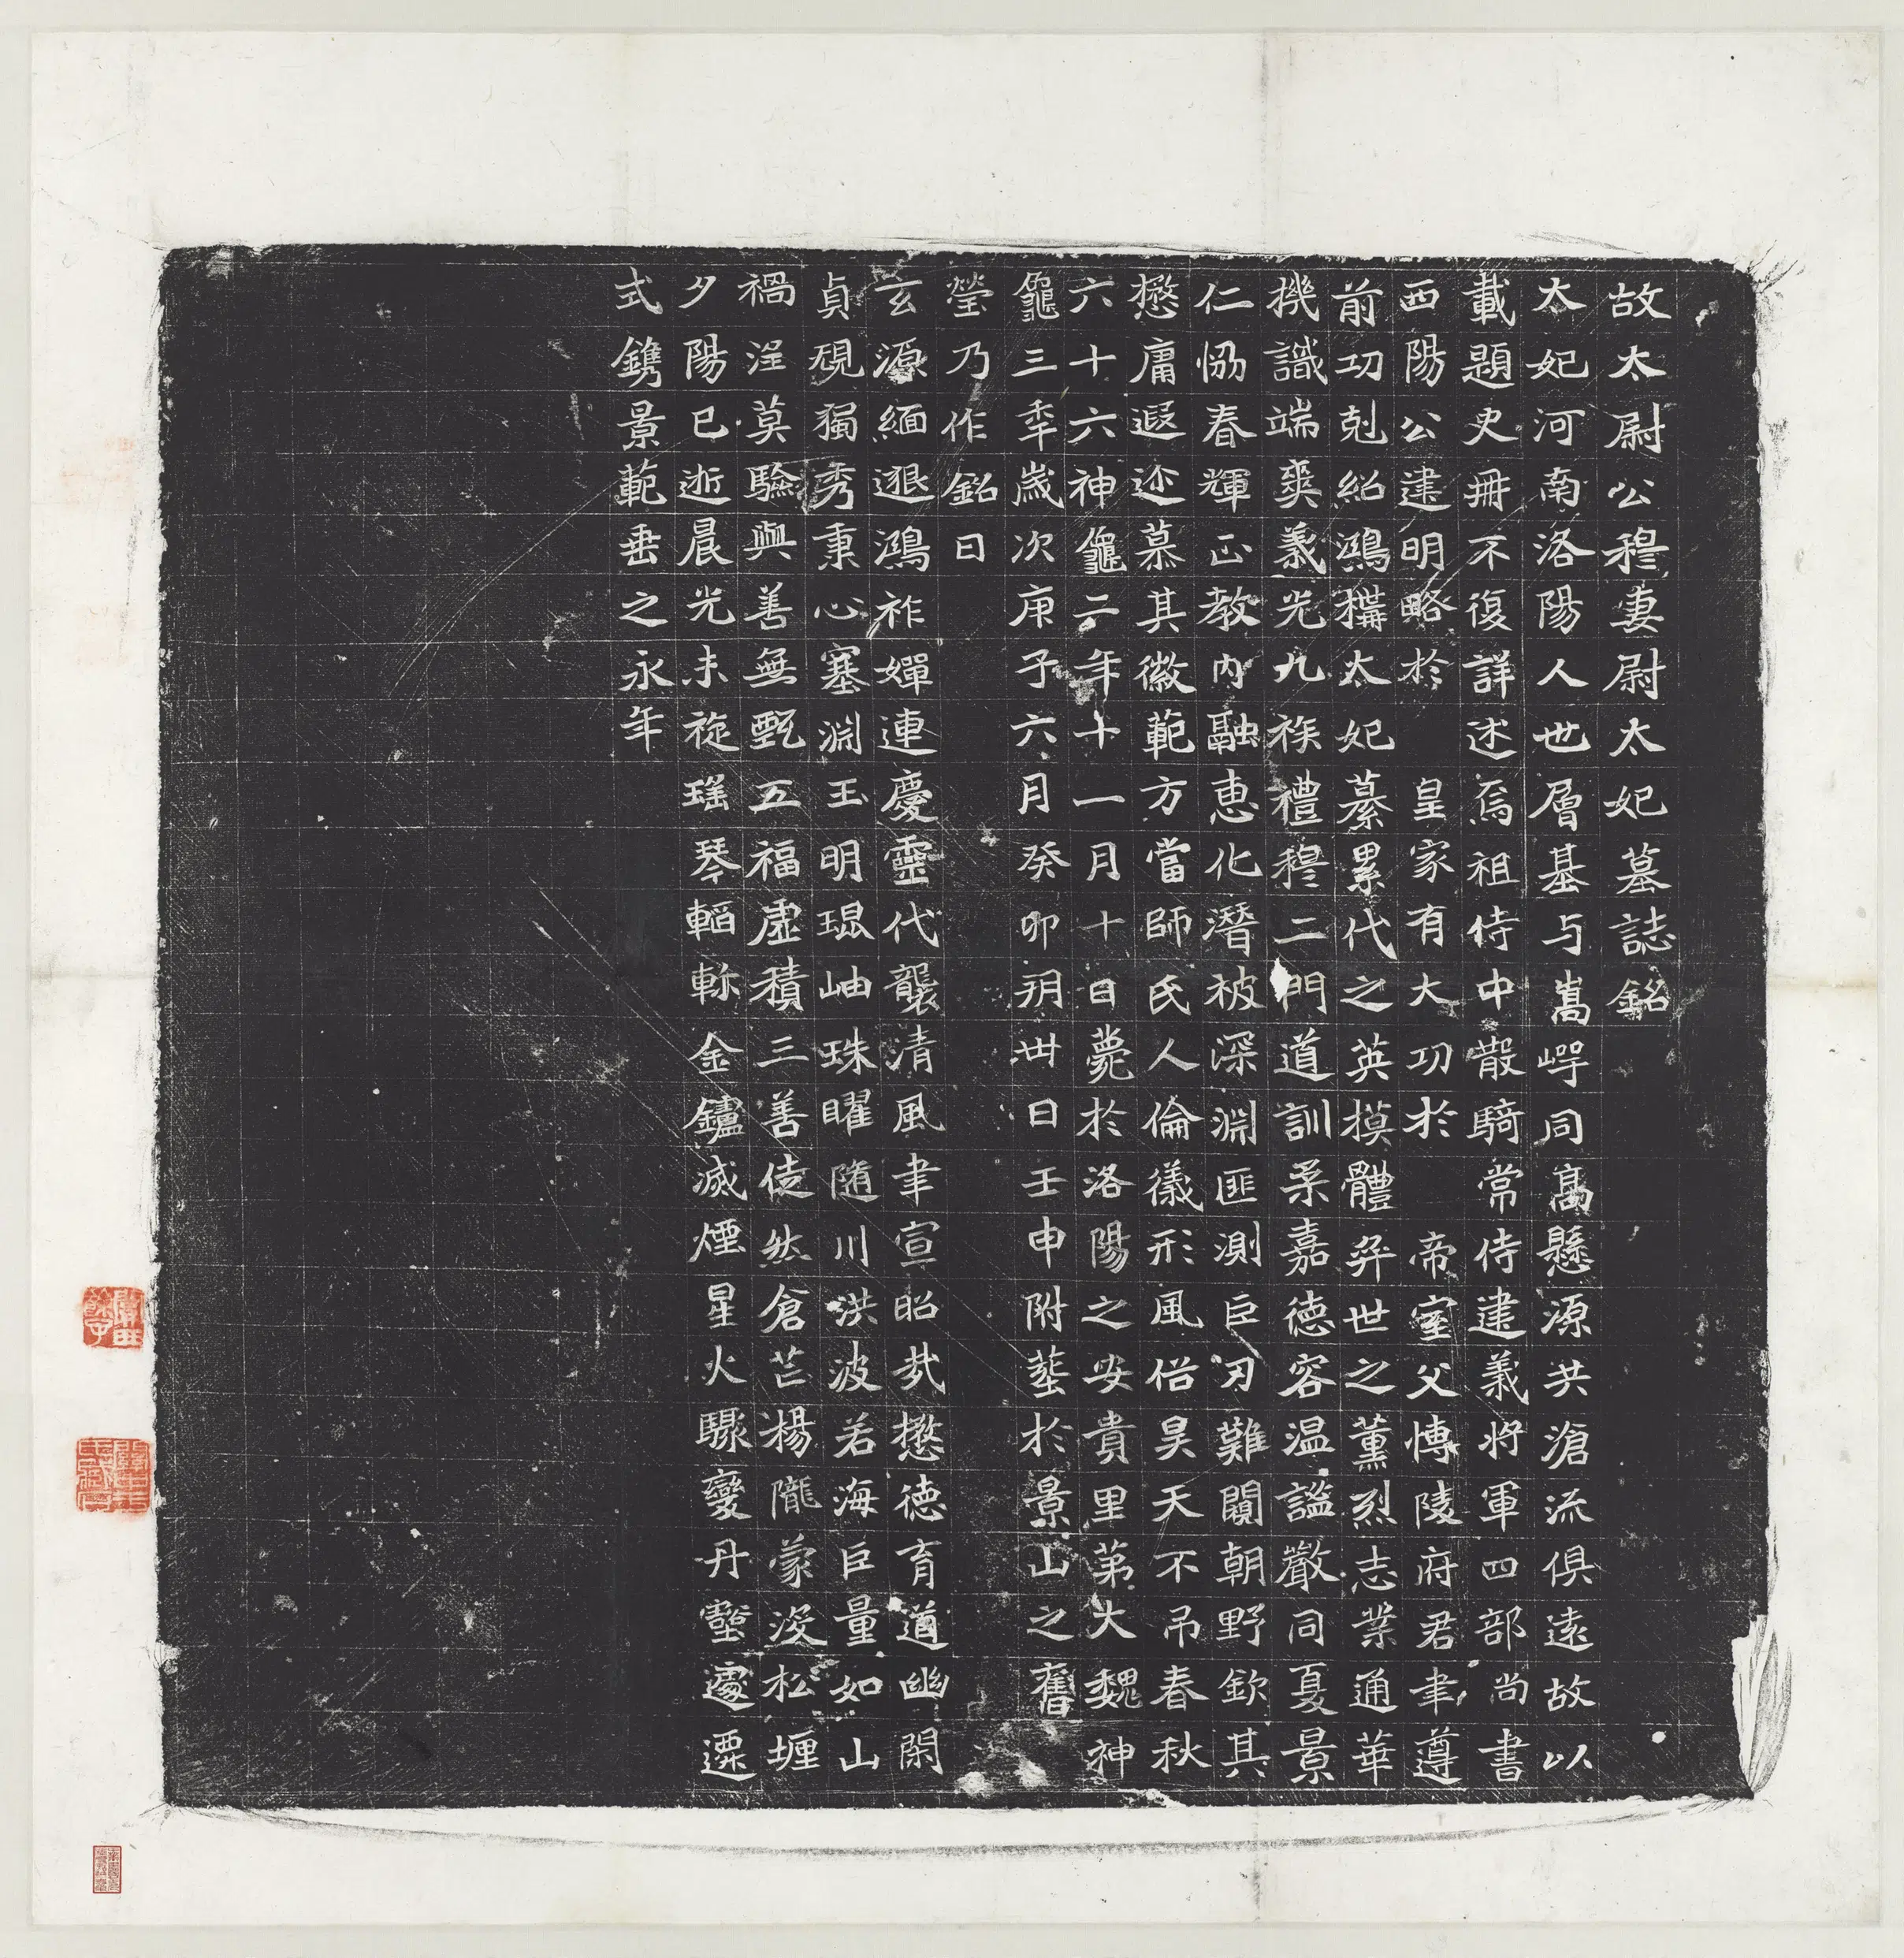 故太尉公穆妻尉太妃墓誌銘
太妃河南洛陽人世層基与嵩崿同高懸源共滄流俱遠故以
載題史冊不復詳述焉祖侍中散騎常侍建義將軍四部尚書
西陽公建明略於皇家有大功於帝室父博陵府君聿遵
前功剋紹鴻構太妃纂累代之英摸體弈世之薰烈志業通華
機識端爽義光九族禮穆二門道訓柔嘉德容温謐嚴同夏景
仁恊春輝正教內融恵化潛被深淵匪測臣刃難闚朝野欽其
懋庸遐迩慕其徽範方當師氏人倫儀形風俗昊天不吊春秋
六十六神龜二年十一月十日薨於洛陽之安貴里第大魏神
龜三秊歲次庚子六月癸卯玥卅日壬申附塟於景山之舊
瑩乃作銘曰
玄源緬邈鴻祚嬋連慶靈代襲清風聿宣昭哉懋德育道幽閑
貞硯獨秀秉心塞淵玉明琨岫珠曜随川洪波若海巨量如山
禍淫莫驗與善無甄五福虛積三善徒然倉芒楊隴蒙沒松堙
夕陽已逝晨光未旋瑤琴輟軫金鑪滅煙星火驟變丹壑遽遷
式鐫景範垂之永年